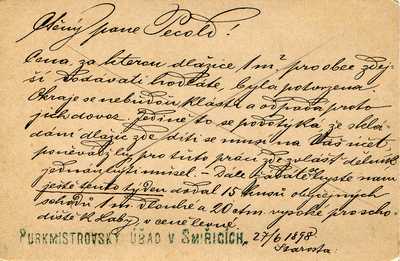 Ctěný pane Pecold!
Cena, za kterou dlaždice 1 m² pro obec zdej-
ší dodávati hodláte, byla potvrzena.
Okraje se nebudou klásti a odpadá proto
jich dovoz. Jediné to se podotýká, že sklá-
dání dlaždic zde díti se musí na Váš účet,
poněvadž by pro tuto práci zde zvlášť dělník
jednán býti musel. – Dále žádáte byste nám
ještě tento týden dodal 15 kusů obyčejných
schodů 1 m dlouhé a 20 ctm vysoké pro scho-
diště k Labi, v ceně levné.
PURKMISTROVSKÝ ÚŘAD V SMIŘICÍCH,
27/6 1898
Starosta: